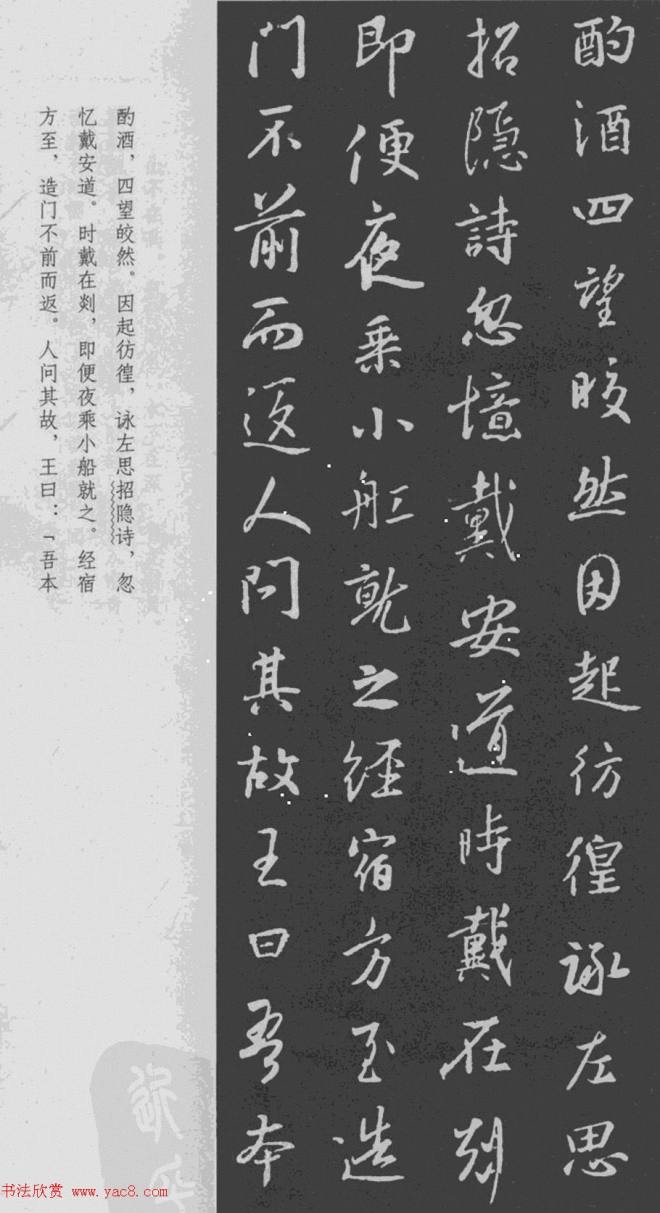 酌酒四望皎然因起彷徨詠左思
招隐詩忽憶戴安道時戴在剡
即便夜乘小舡就之經宿方至造
門不前而返人问其故王曰吾本
酌酒，四望皎然。因起彷徨，咏左思招隐诗，忽
忆戴安道。时戴在剡，即便夜乘小船就之。经宿
方至，造门不前而返。人问其故，王曰：「吾本
书法欣赏 www.yac8.com